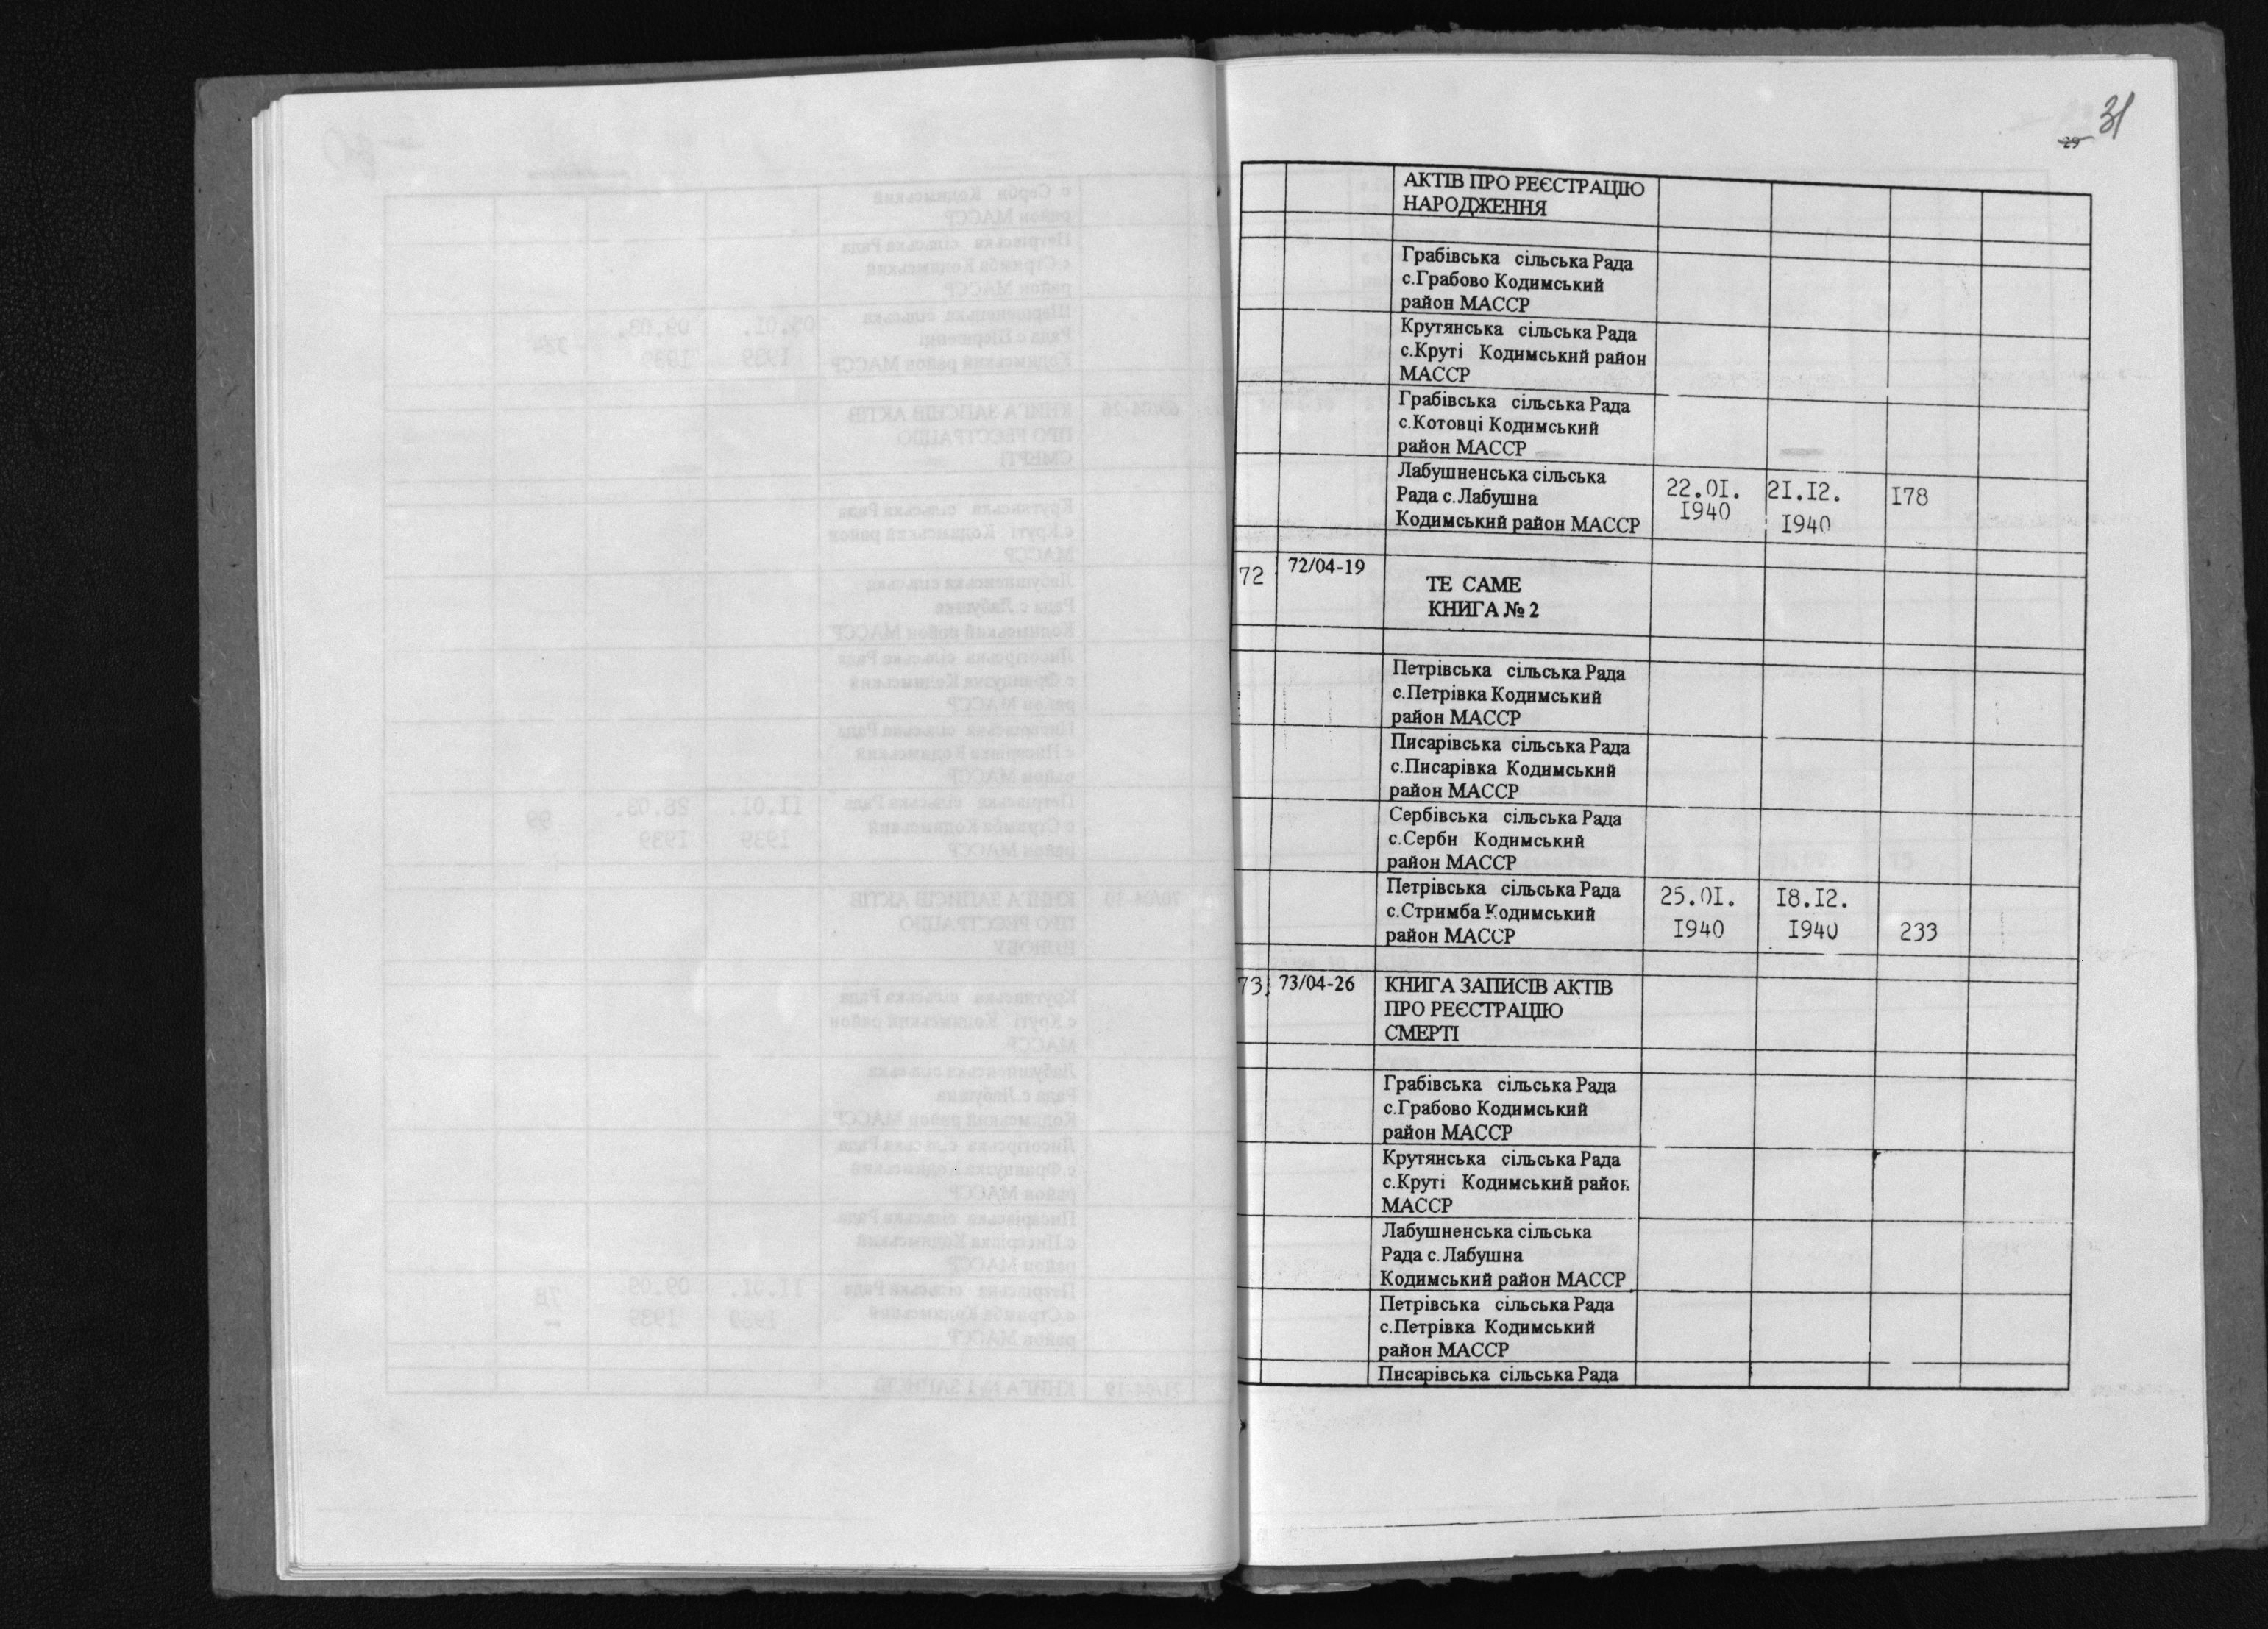 31
29
АКТІВ ПРО РЕЄСТРАЦІЮ
НАРОДЖЕННЯ
Грабівська сільська Рада
с.Грабово Кодимський
район МАССР
Крутянська сільська Рада
с.Круті Кодимський район
МАССР
Грабівська сільська Рада
с.Котовці Кодимський
район МАССР
Лабушненська сільська
Рада с.Лабушна
Кодимський район МАССР
22.01.
1940
21.12.
1940
178
72
72/04-19
ТЕ САМЕ
КНИГА № 2
Петрівська сільська Рада
с.Петрівка Кодимський
район МАССР
Писарівська сільська Рада
с.Писарівка Кодимський
район МАССР
Сербівська сільська Рада
с.Серби Кодимський
район МАССР
Петрівська сільська Рада
с.Стримба Кодимський
район МАССР
25.01.
1940
18.12.
1940
233
73
73/04-26
КНИГА ЗАПИСІВ АКТІВ
ПРО РЕЄСТРАЦІЮ
СМЕРТІ
Грабівська сільська Рада
с.Грабово Кодимський
район МАССР
Крутянська сільська Рада
с.Круті Кодимський район
МАССР
Лабушненська сільська
Рада с.Лабушна
Кодимський район МАССР
Петрівська сільська Рада
с.Петрівка Кодимський
район МАССР
Писарівська сільська Рада